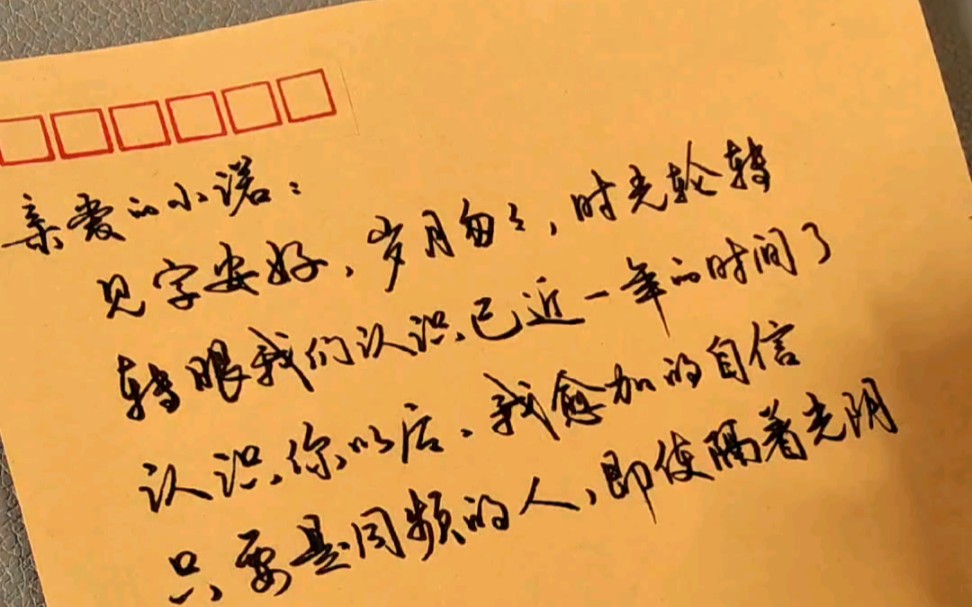 亲爱的小诺：
见字安好，岁月匆匆，时光轮转
转眼我们认识已近一年的时间了
认识你以后、我愈加的自信
只要是同频的人，即使隔着光阴